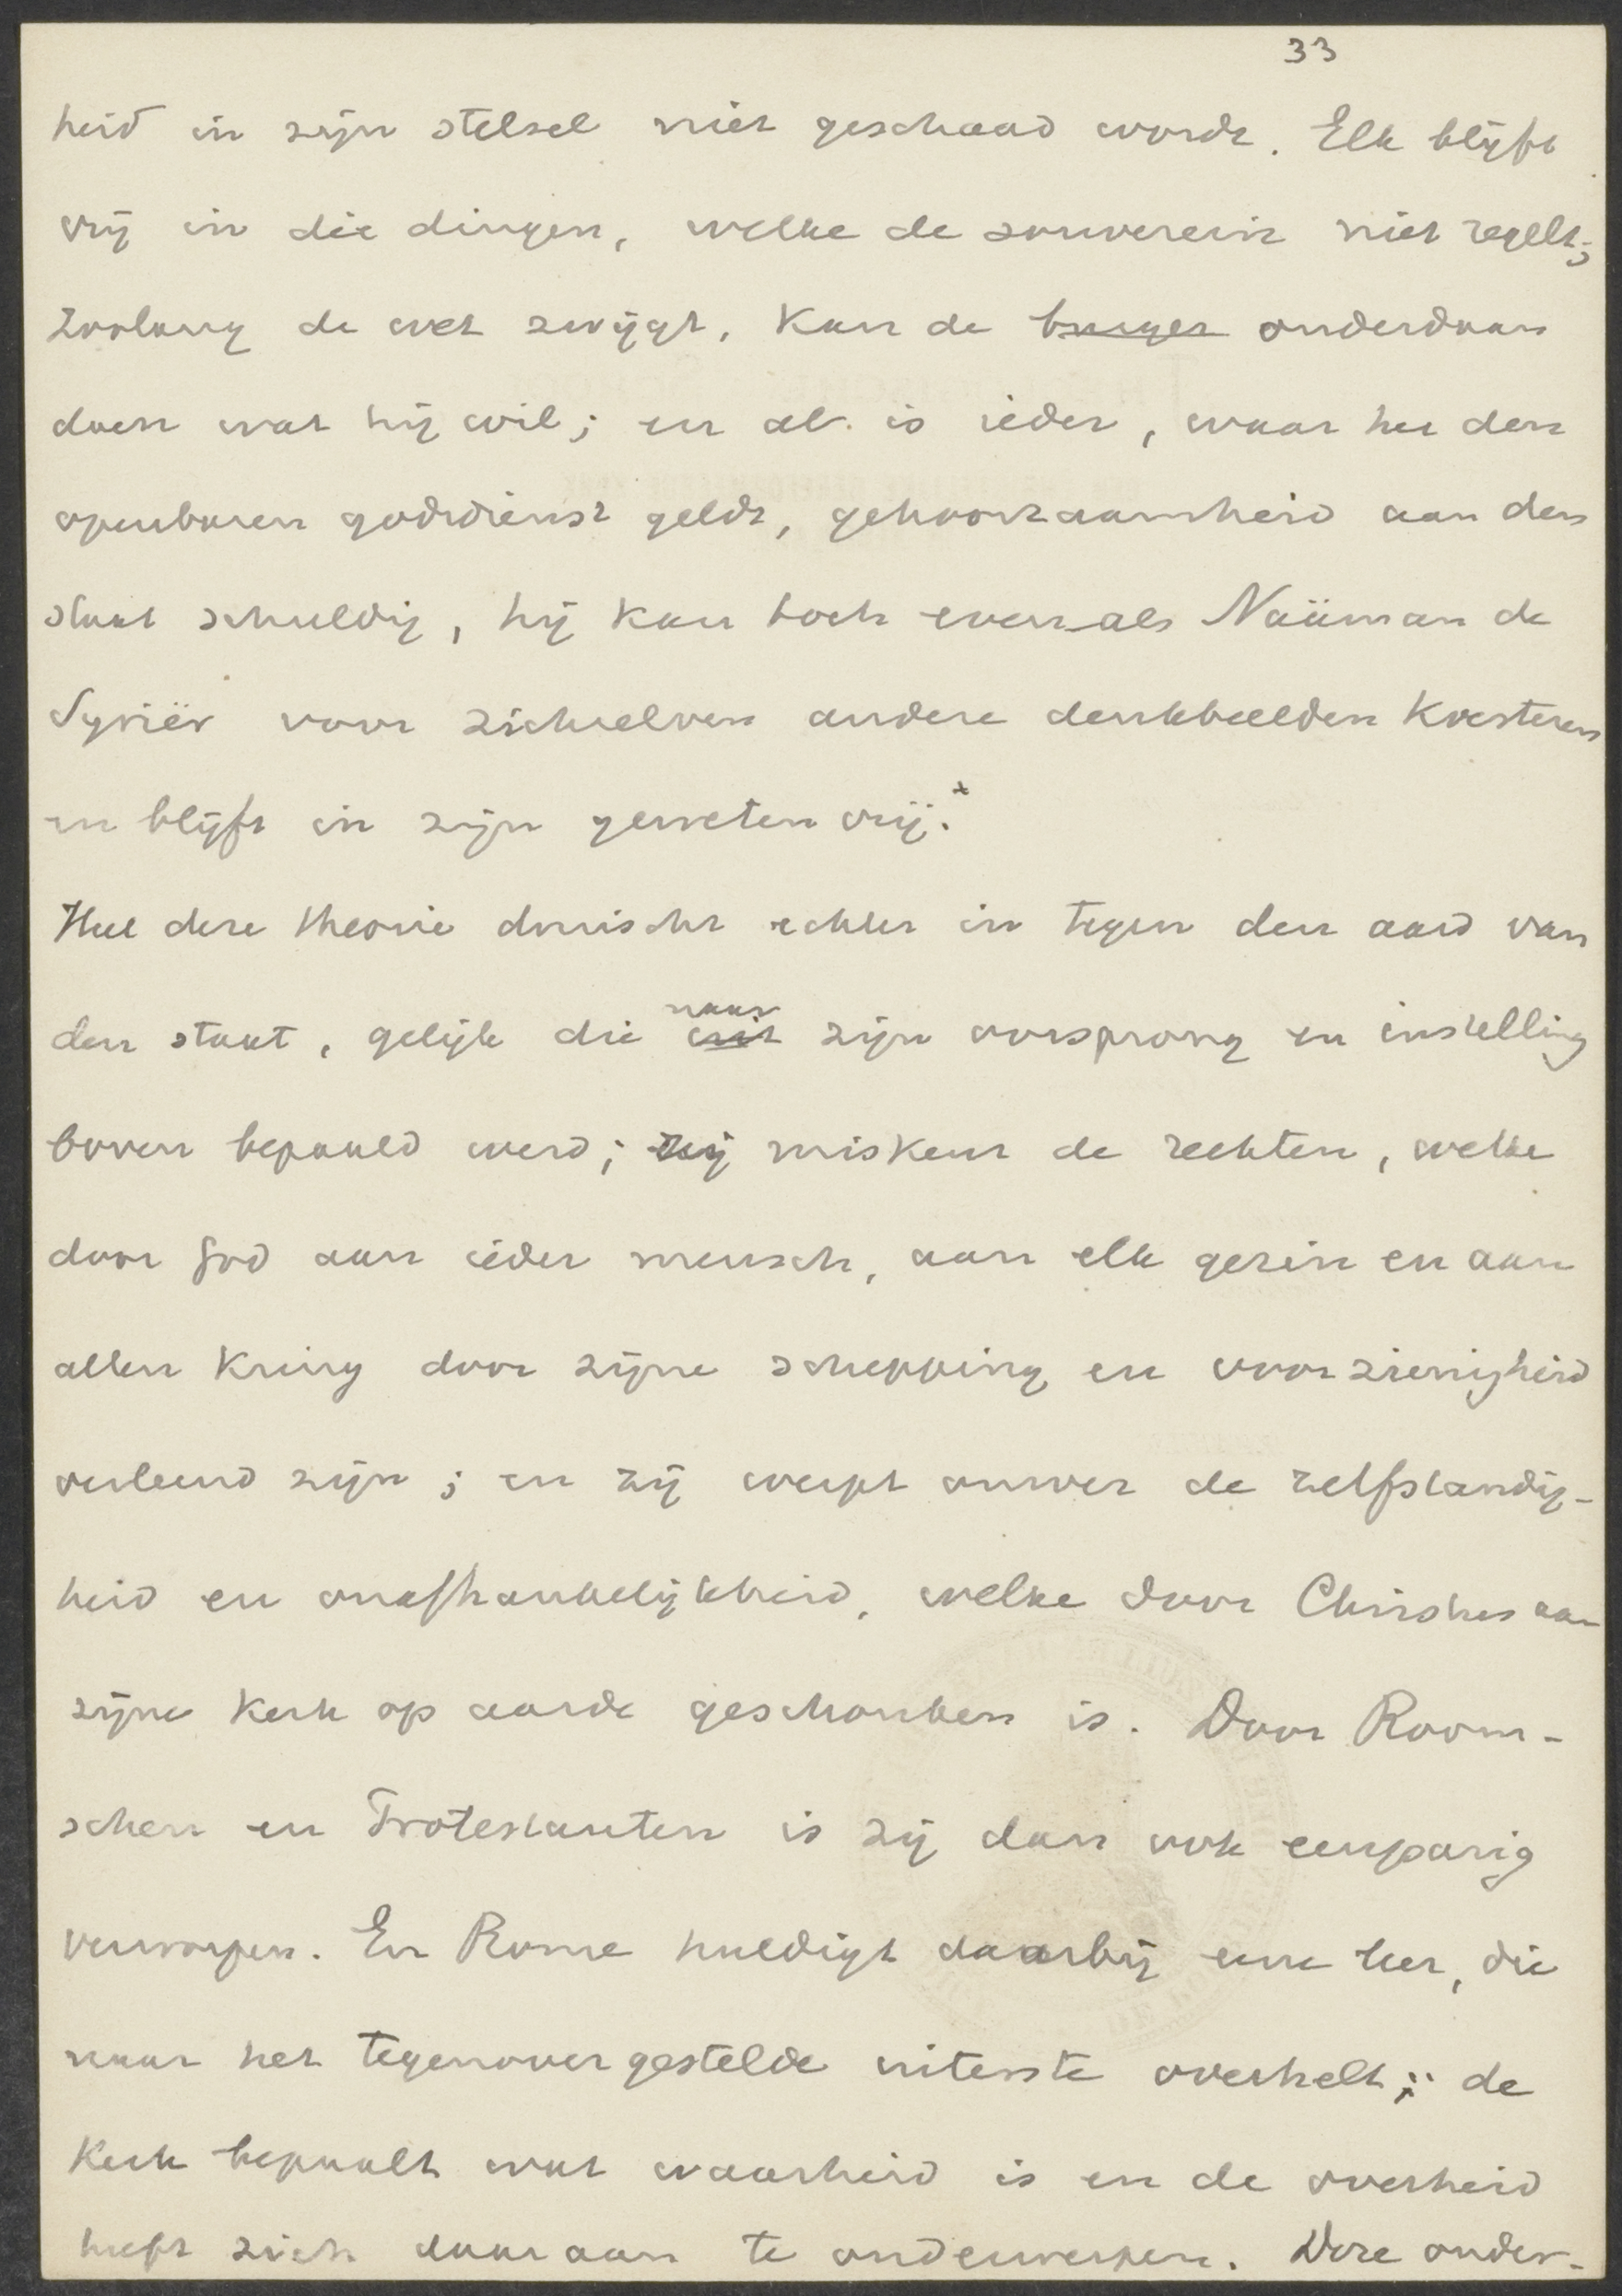 33
heid in zijn stelsel niet geschaad wordt. Elk blijft
vrij in die dingen, welke de souverein niet regelt;
zoolang de wet zwijgt, kan de burger onderdaan
doen wat hij wil; en al is ieder, waar het den
openbaren godsdienst geldt, gehoorzaamheid aan den
staat schuldig, hij kan toch evenals Naäman de
Syriër voor zichzelven andere denkbeelden koesteren
en blijft in zijn geweten vrij.
Heel deze theorie druischt echter in tegen den aard van
den staat, gelijk die uit naar zijn oorsprong en instelling
boven bepaald werd; zij miskent de rechten, welke
door God aan ieder mensch, aan elk gezin en aan
allen kring door zijne schepping en voorzienigheid
verleend zijn; en zij werpt omver de zelfstandig-
heid en onafhankelijkheid, welke door Christus aan
zijne kerk op aarde geschonken is. Door Room-
schen en Protestanten is zij dan ook eenparig
verworpen. En Rome huldigt daarbij eene leer, die
naar het tegenovergestelde uiterste overhelt; de
Kerk bepaalt wat waarheid is en de overheid
heeft zich daaraan te onderwerpen. Deze onder-